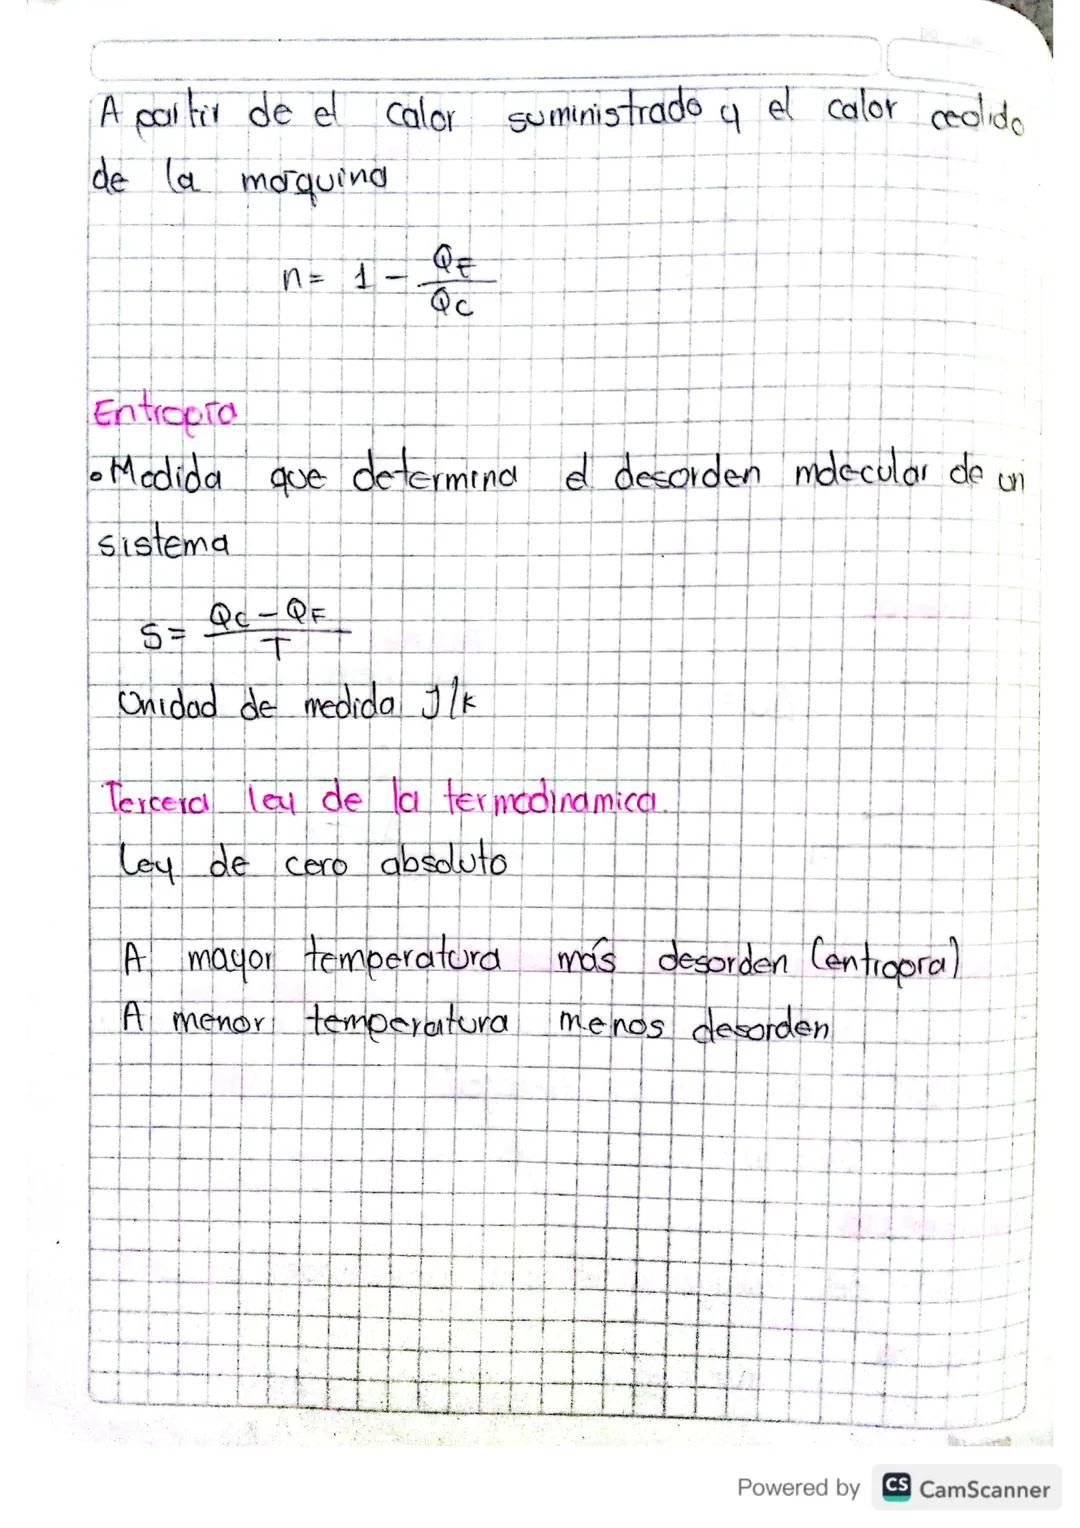 A partir de el calor suministrado y el calor cedido
de la maquina
n= 1 - QF/QC
Entropía
• Medida que determina el desorden molecular de un
sistema
S= QC-QF/T
Unidad de medida J/k
Tercera ley de la termodinamica.
Ley de cero absoluto
A mayor temperatura más desorden (entropía)
A menor temperatura menos desorden
Powered by CS CamScanner